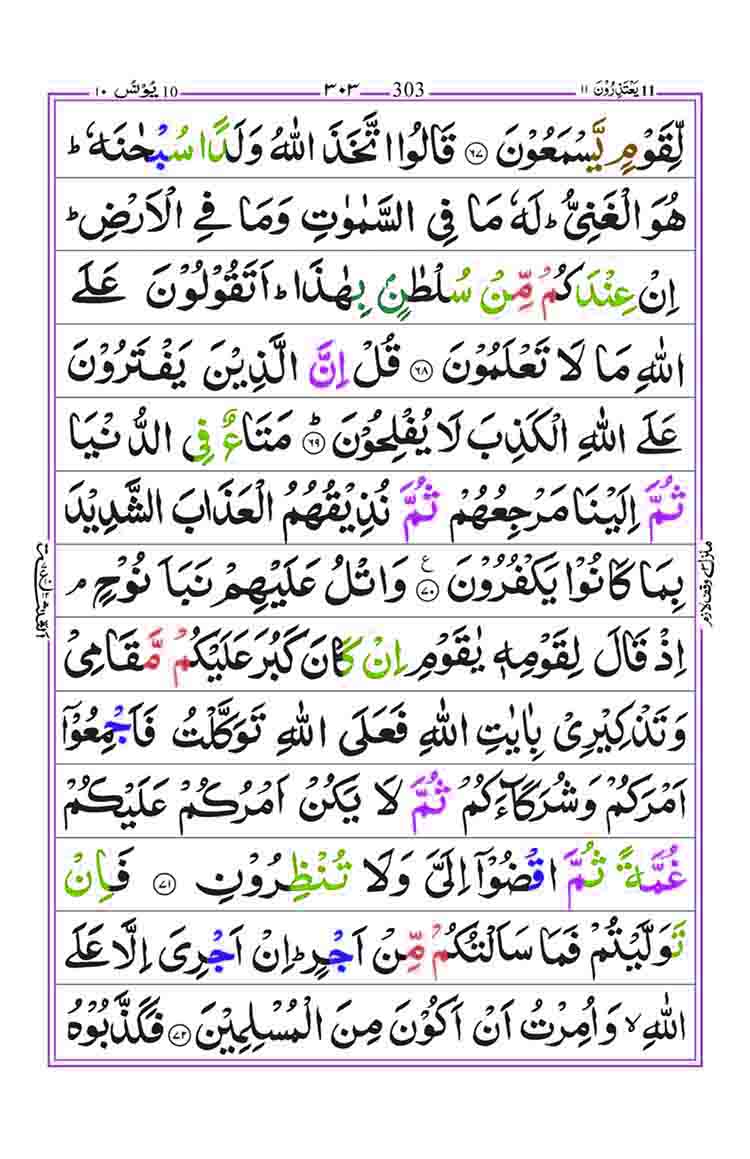 11 یَعْتَذِرُوْنَ ١١ 303 ٣٠٣ 10 یُوْنُس ١٠
لِّقَوْمٍ یَّسْمَعُوْنَ ﴿٦٧﴾ قَالُوا اتَّخَذَ اللّٰهُ وَلَدًا سُبْحٰنَهٗ ؕ
هُوَ الْغَنِیُّ ؕ لَهٗ مَا فِی السَّمٰوٰتِ وَمَا فِی الْاَرْضِ ؕ
اِنْ عِنْدَكُمْ مِّنْ سُلْطٰنٍۭ بِهٰذَا ؕ اَتَقُوْلُوْنَ عَلَی
اللّٰهِ مَا لَا تَعْلَمُوْنَ ﴿٦٨﴾ قُلْ اِنَّ الَّذِیْنَ یَفْتَرُوْنَ
عَلَی اللّٰهِ الْكَذِبَ لَا یُفْلِحُوْنَ ؕ﴿٦٩﴾ مَتَاعٌ فِی الدُّنْیَا
ثُمَّ اِلَیْنَا مَرْجِعُهُمْ ثُمَّ نُذِیْقُهُمُ الْعَذَابَ الشَّدِیْدَ
بِمَا كَانُوْا یَكْفُرُوْنَ ﴿٧٠﴾ ع وَاتْلُ عَلَیْهِمْ نَبَاَ نُوْحٍ ۘ
اِذْ قَالَ لِقَوْمِهٖ یٰقَوْمِ اِنْ كَانَ كَبُرَ عَلَیْكُمْ مَّقَامِیْ
وَتَذْكِیْرِیْ بِاٰیٰتِ اللّٰهِ فَعَلَی اللّٰهِ تَوَكَّلْتُ فَاَجْمِعُوْۤا
اَمْرَكُمْ وَشُرَكَآءَكُمْ ثُمَّ لَا یَكُنْ اَمْرُكُمْ عَلَیْكُمْ
غُمَّةً ثُمَّ اقْضُوْۤا اِلَیَّ وَلَا تُنْظِرُوْنِ ﴿٧١﴾ فَاِنْ
تَوَلَّیْتُمْ فَمَا سَاَلْتُكُمْ مِّنْ اَجْرٍ ؕ اِنْ اَجْرِیَ اِلَّا عَلَی
اللّٰهِ ۙ وَاُمِرْتُ اَنْ اَكُوْنَ مِنَ الْمُسْلِمِیْنَ ﴿٧٢﴾ فَكَذَّبُوْهُ
منزل ٣ وقف لازم